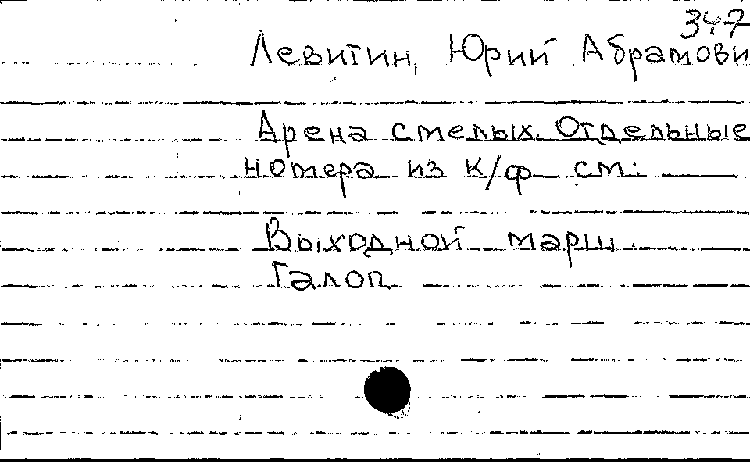 347
Левитин, Юрий Абрамови
Арена смелых. Отдельные
номера из к/ф см:
Выходной марш
Галоп